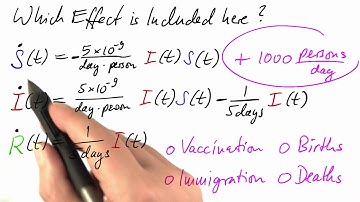 Which Effect is Included here?
Ṡ(t) = - 5×10⁻⁹ / day·person I(t) S(t) + 1000 persons / day
İ(t) = 5×10⁻⁹ / day·person I(t) S(t) - 1 / 5 days I(t)
Ṙ(t) = 1 / 5 days I(t)
o Vaccination o Births
o Immigration o Deaths